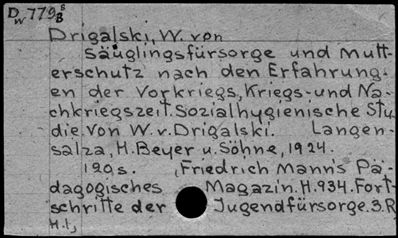 D 779 s
w B
Drigalski, W. von
Säuglingsfürsorge und Mutt-
erschutz nach den Erfahrung-
en der Vorkriegs, Kriegs- und Na-
chkriegszeit. Sozialhygienische Stu
die von W. v. Drigalski. Langen-
salza, H. Beyer u. Söhne, 1924.
129s. (Friedrich Mann's Pä-
dagogisches Magazin. H. 934. Fort-
schritte der Jugendfürsorge. 3. R
H. 1,